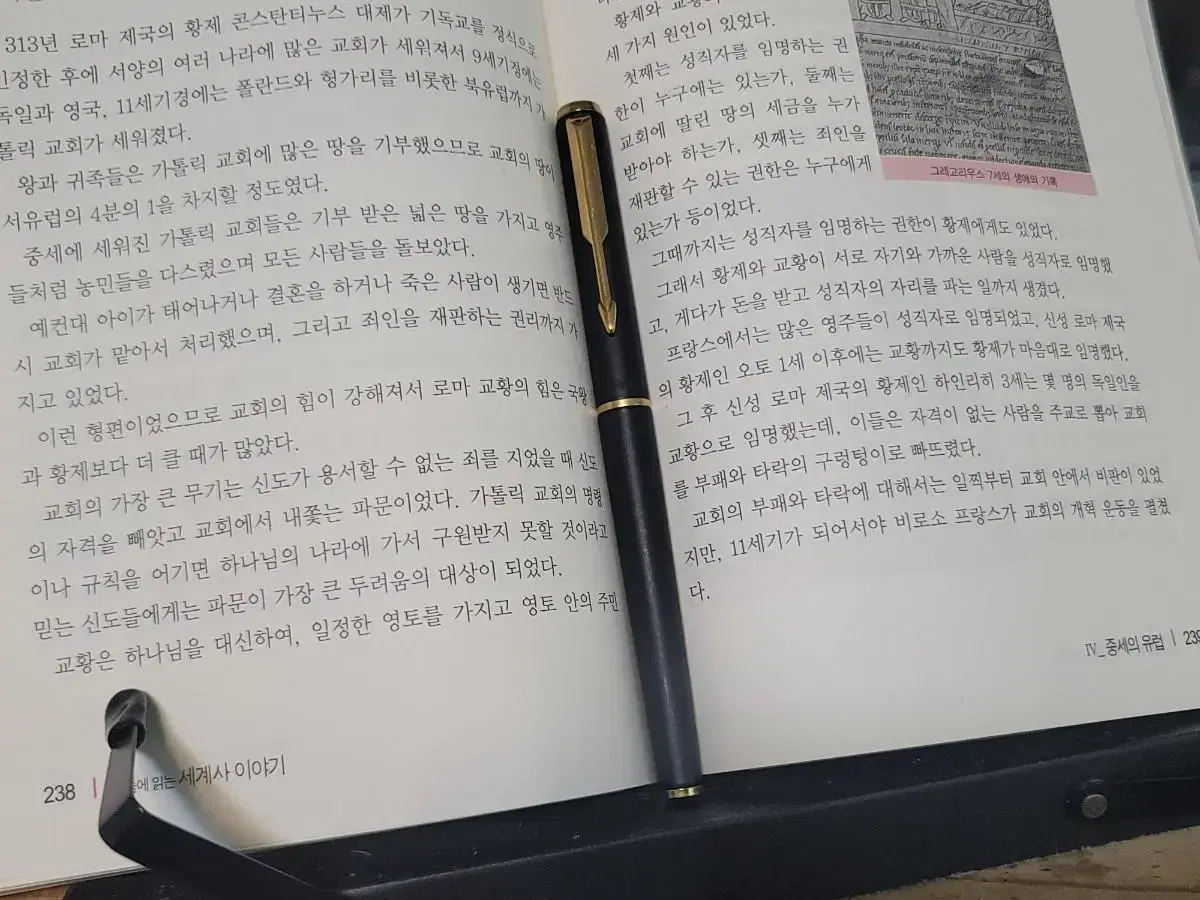 313년 로마 제국의 황제 콘스탄티누스 대제가 기독교를 정식으로
인정한 후에 서양의 여러 나라에 많은 교회가 세워져서 9세기경에는
독일과 영국, 11세기경에는 폴란드와 헝가리를 비롯한 북유럽까지 가
톨릭 교회가 세워졌다.
왕과 귀족들은 가톨릭 교회에 많은 땅을 기부했으므로 교회의 땅이
서유럽의 4분의 1을 차지할 정도였다.
중세에 세워진 가톨릭 교회들은 기부 받은 넓은 땅을 가지고 영주
들처럼 농민들을 다스렸으며 모든 사람들을 돌보았다.
예컨대 아이가 태어나거나 결혼을 하거나 죽은 사람이 생기면 반드
시 교회가 맡아서 처리했으며, 그리고 죄인을 재판하는 권리까지 가
지고 있었다.
이런 형편이었으므로 교회의 힘이 강해져서 로마 교황의 힘은 국왕
과 황제보다 더 클 때가 많았다.
교회의 가장 큰 무기는 신도가 용서할 수 없는 죄를 지었을 때 신도
의 자격을 빼앗고 교회에서 내쫓는 파문이었다. 가톨릭 교회의 명령
이나 규칙을 어기면 하나님의 나라에 가서 구원받지 못할 것이라고
믿는 신도들에게는 파문이 가장 큰 두려움의 대상이 되었다.
교황은 하나님을 대신하여, 일정한 영토를 가지고 영토 안의 주민
238
읽는 세계사 이야기
황제와
세 가지 원인이 있었다.
첫째는 성직자를 임명하는 권
한이 누구에는 있는가, 둘째는
교회에 딸린 땅의 세금을 누가
받아야 하는가, 셋째는 죄인을
재판할 수 있는 권한은 누구에게
있는가 등이었다.
그레고리우스 7세의 생애의 기록
그때까지는 성직자를 임명하는 권한이 황제에게도 있었다.
그래서 황제와 교황이 서로 자기와 가까운 사람을 성직자로 임명했
고, 게다가 돈을 받고 성직자의 자리를 파는 일까지 생겼다.
프랑스에서는 많은 영주들이 성직자로 임명되었고, 신성 로마 제국
의 황제인 오토 1세 이후에는 교황까지도 황제가 마음대로 임명했다.
그 후 신성 로마 제국의 황제인 하인리히 3세는 몇 명의 독일인을
교황으로 임명했는데, 이들은 자격이 없는 사람을 주교로 뽑아 교회
를 부패와 타락의 구렁텅이로 빠뜨렸다.
교회의 부패와 타락에 대해서는 일찍부터 교회 안에서 비판이 있었
지만, 11세기가 되어서야 비로소 프랑스가 교회의 개혁 운동을 펼쳤
다.
Ⅳ_중세의 유럽 | 239